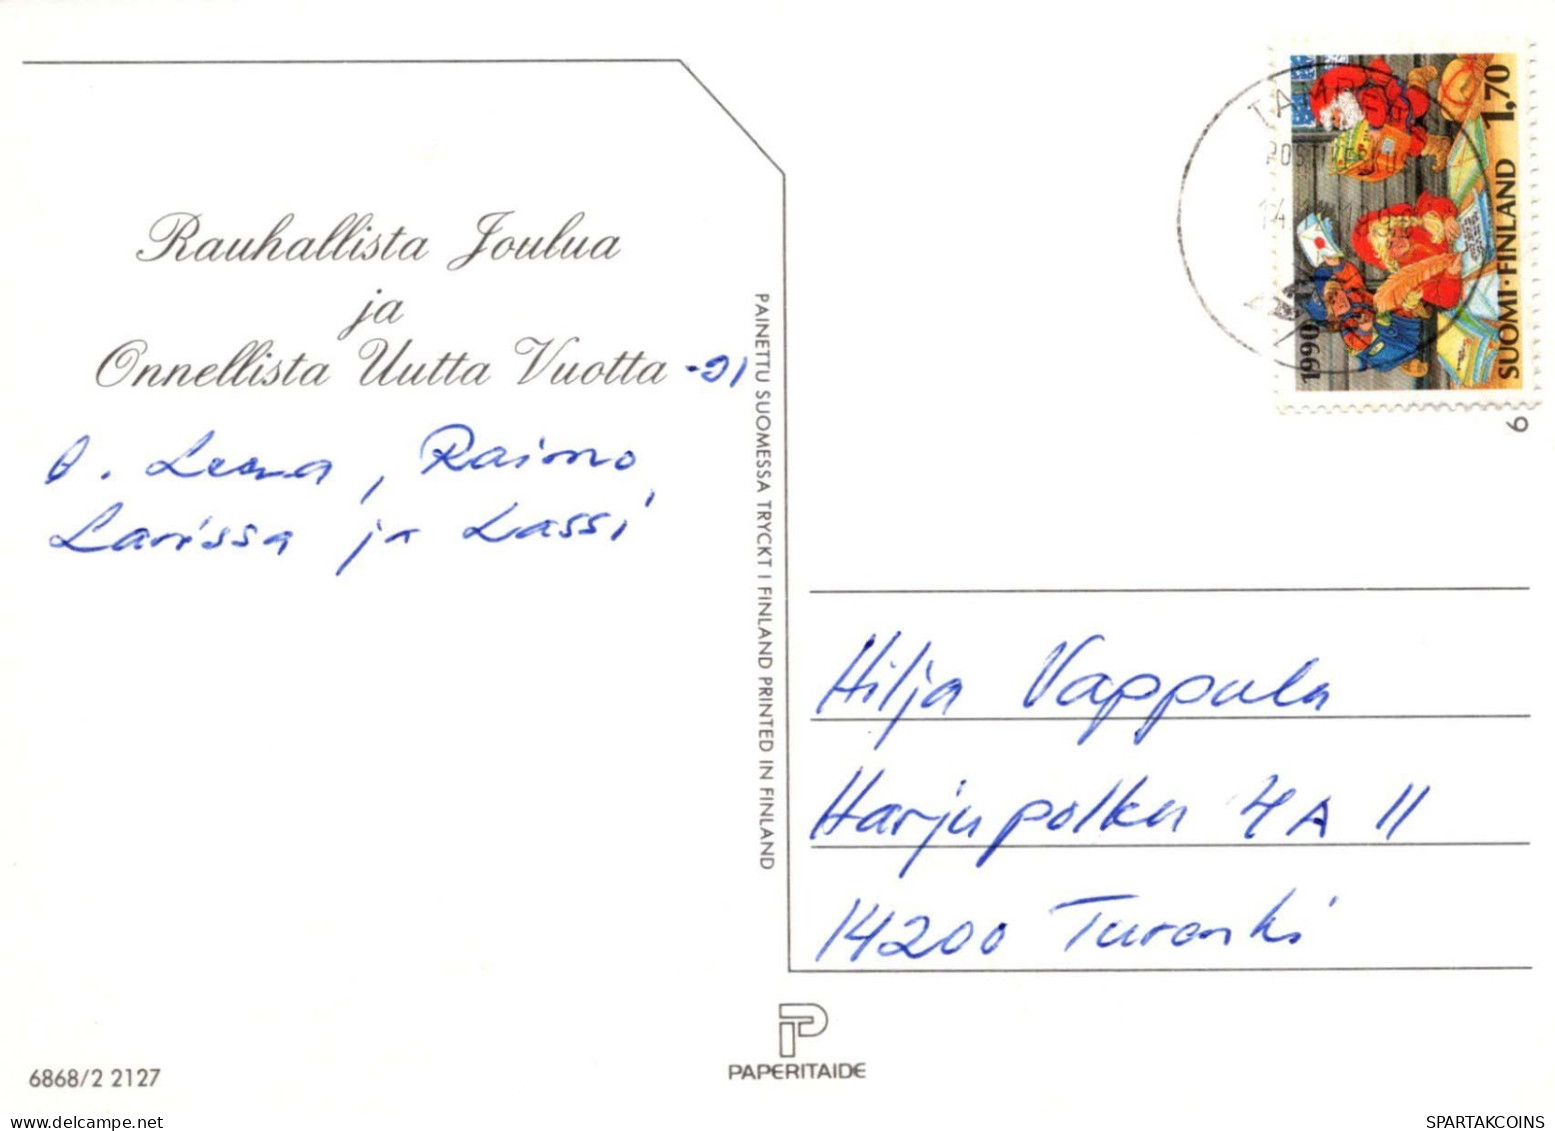 Rauhallista Joulua
ja
Onnellista Uutta Vuotta -91
t. Leena, Raimo,
Larissa ja Lassi
PAINETTU SUOMESSA TRYCKT I FINLAND PRINTED IN FINLAND
1,70
SUOMI·FINLAND
1990
9
Hilja Vappula
Harjupolku 4 A 11
14200 Turenki
PAPERITAIDE
6868/2 2127
SPARTAKCOINS